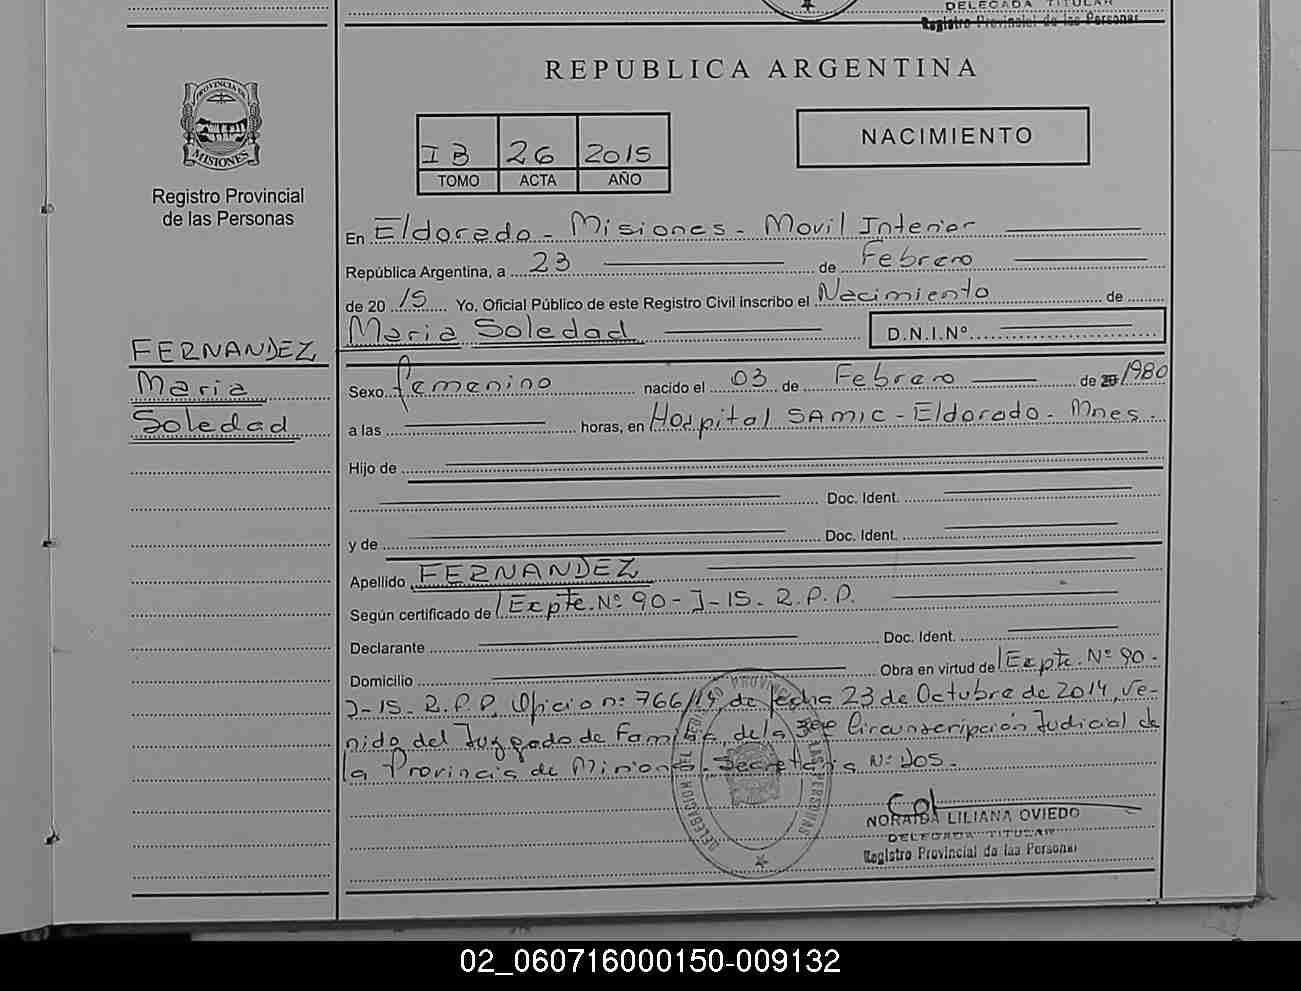 DELEGADA TITULAR
Registro Provincial de las Personas
REPUBLICA ARGENTINA
PROVINCIA DE
MISIONES
Registro Provincial
de las Personas
I B 26 2015
TOMO ACTA AÑO
NACIMIENTO
En Eldorado - Misiones - Movil Interior
República Argentina, a 23 de Febrero
de 20 15 Yo, Oficial Público de este Registro Civil inscribo el Nacimiento de
Maria Soledad D.N.I.Nº
FERNANDEZ
Maria
Soledad
Sexo femenino nacido el 03 de Febrero de 20 1980
a las horas, en Hospital SAMIC - Eldorado - Mnes -
Hijo de
Doc. Ident.
y de Doc. Ident.
Apellido FERNANDEZ
Según certificado de Expte. Nº 90 - J - 15 - R.P.P.
Declarante Doc. Ident.
Domicilio Obra en virtud de Expte. Nº 90 -
J - 15 - R.P.P. Oficio nº 766/14, de fecha 23 de Octubre de 2014, ve-
nido del Juzgado de Familia, de la 3era Circunscripción Judicial de
la Provincia de Misiones, Secretaria Nº Dos.
DELEGACION DEL REGISTRO PROVINCIAL DE LAS PERSONAS
NORAIDA LILIANA OVIEDO
DELEGADA TITULAR
Registro Provincial de las Personas
02_060716000150-009132